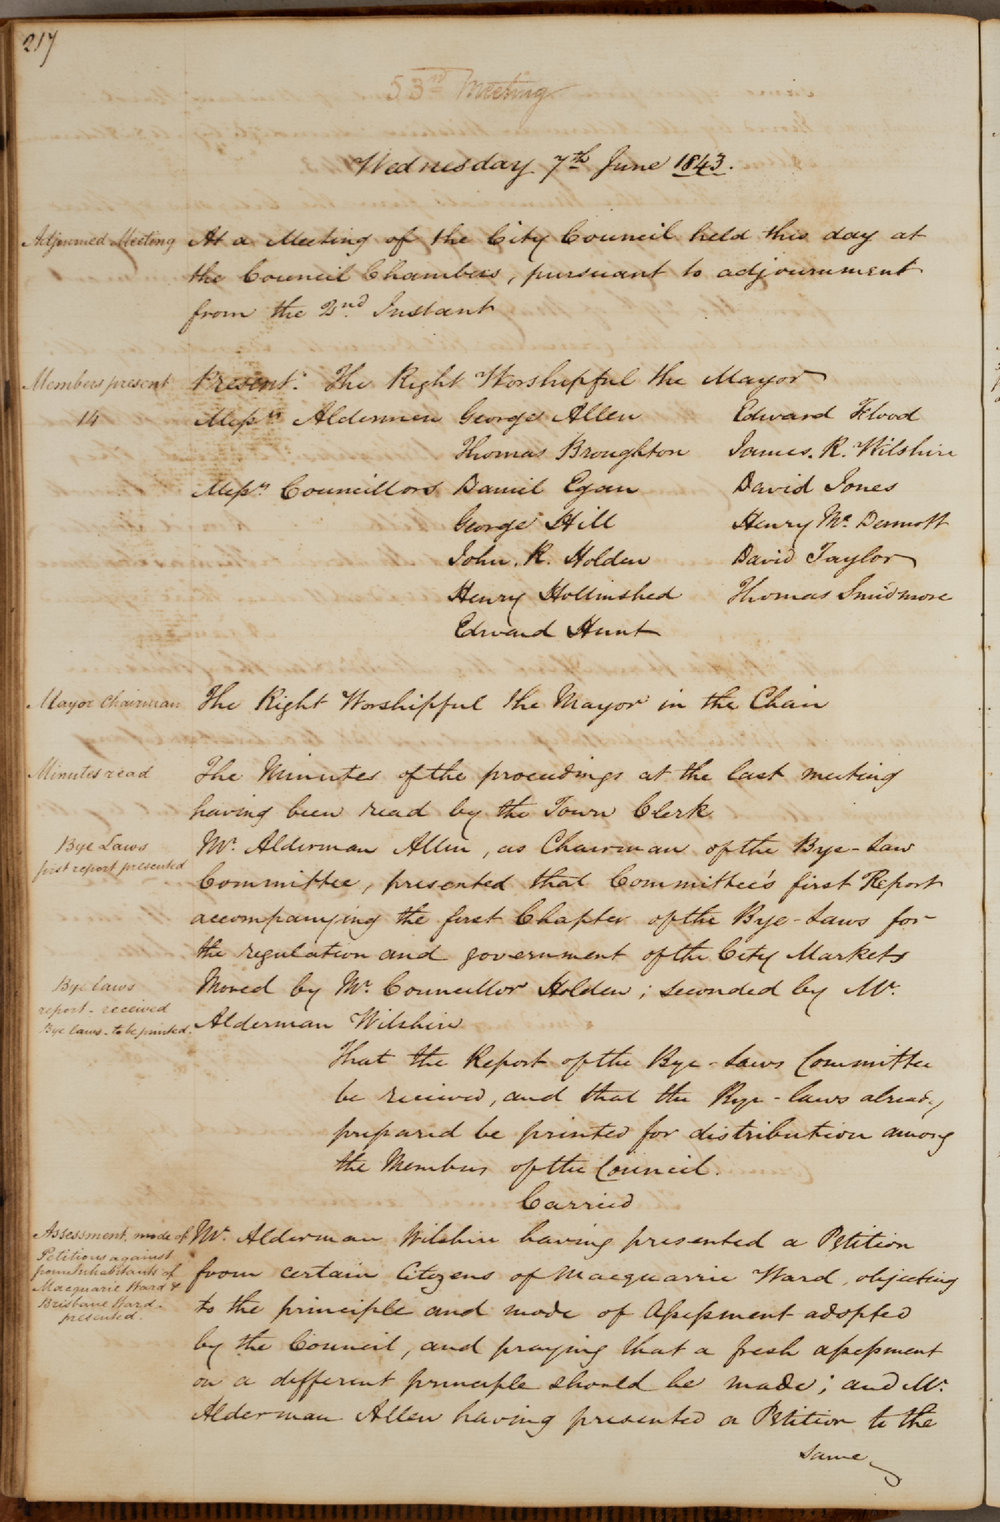 217
53rd Meeting
Wednesday 7th June 1843.
Adjourned Meeting At a Meeting of the City Council held this day at
the Council Chambers, pursuant to adjournment
from the 2nd Instant
Members present Present: The Right Worshipful the Mayor
14 Messrs Aldermen George Allen Edward Flood
Thomas Broughton James. R. Wilshire
Messrs Councillors Daniel Egan David Jones
George Hill Henry Mc Dermott
John. R. Holden David Taylor
Henry Hollinshed Thomas Smidmore
Edward Hunt
Mayor Chairman The Right Worshipful the Mayor in the Chair
Minutes read The Minutes of the proceedings at the last meeting
having been read by the Town Clerk
Bye Laws Mr. Alderman Allen, as Chairman of the Bye-Law
first report presented Committee, presented that Committee's first Report
accompanying the first Chapter of the Bye-Laws for
the regulation and government of the City Markets
Bye laws Moved by Mr. Councillor Holden; seconded by Mr.
report - received
Bye laws - to be printed. Alderman Wilshire
That the Report of the Bye-Laws Committee
be received, and that the Bye-laws already
prepared be printed for distribution among
the Members of the Council.
Carried
Assessment, mode of Mr. Alderman Wilshire having presented a Petition
Petitions against
from Inhabitants of from certain Citizens of Macquarrie Ward, objecting
Macquarie Ward &
Brisbane Ward. to the principle and mode of Assessment adopted
presented.
by the Council, and praying that a fresh assessment
on a different principle should be made; and Mr.
Alderman Allen having presented a Petition to the
same